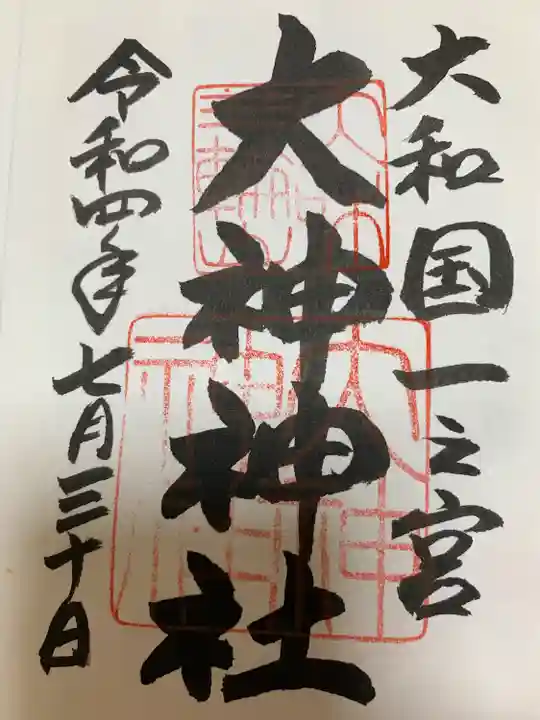 大和国一之宮
大神神社
令和四年七月三十日
大神神社